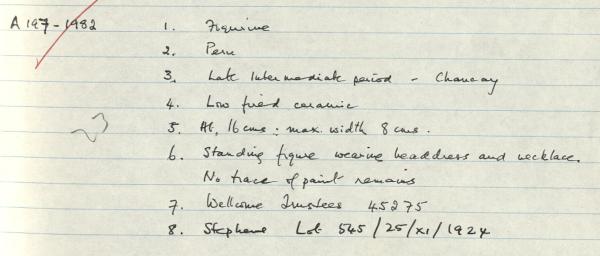 A 197-1982 1. Figurine
2. Peru
3. Late Intermediate period - Chancay
4. Low fired ceramic
5. Ht. 16 cms; max. width 8 cms.
6. Standing figure wearing headdress and necklace.
No trace of paint remains
7. Wellcome Trustees 45275
8. Stephens Lot 545/25/XI/1924